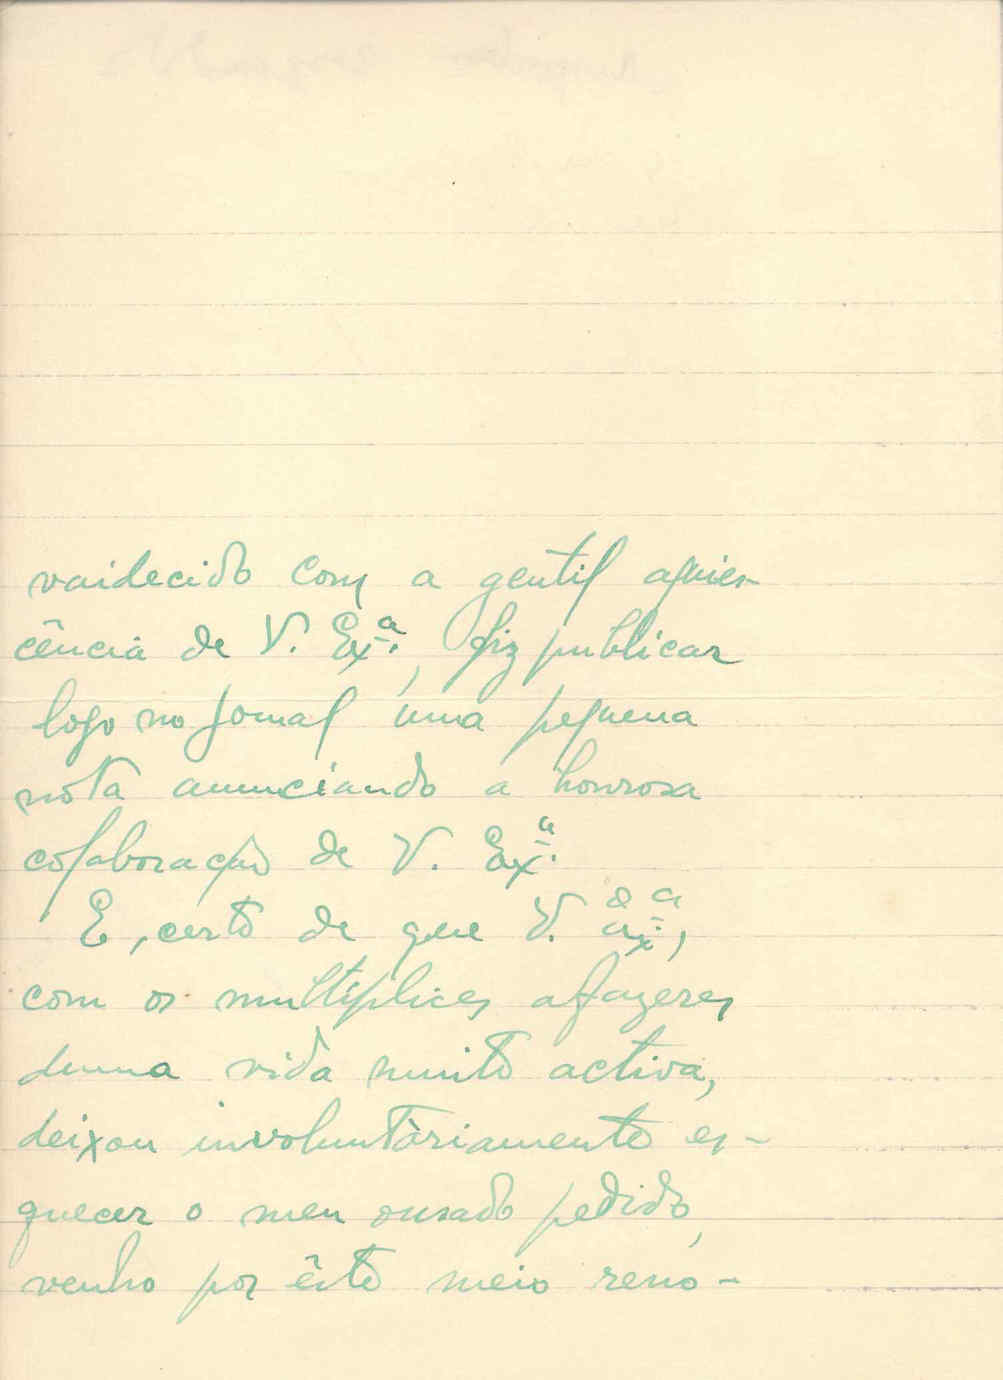 vaidecido com a gentil aquies-
cência de V. Ex.ª, fiz publicar
logo no jornal uma pequena
nota anunciando a honrosa
colaboração de V. Ex.ª
E, certo de que V. Ex.ª,
com os multíplices afazeres
duma vida muito activa,
deixou involuntàriamente es-
quecer o meu ousado pedido,
venho por êste meio reno-